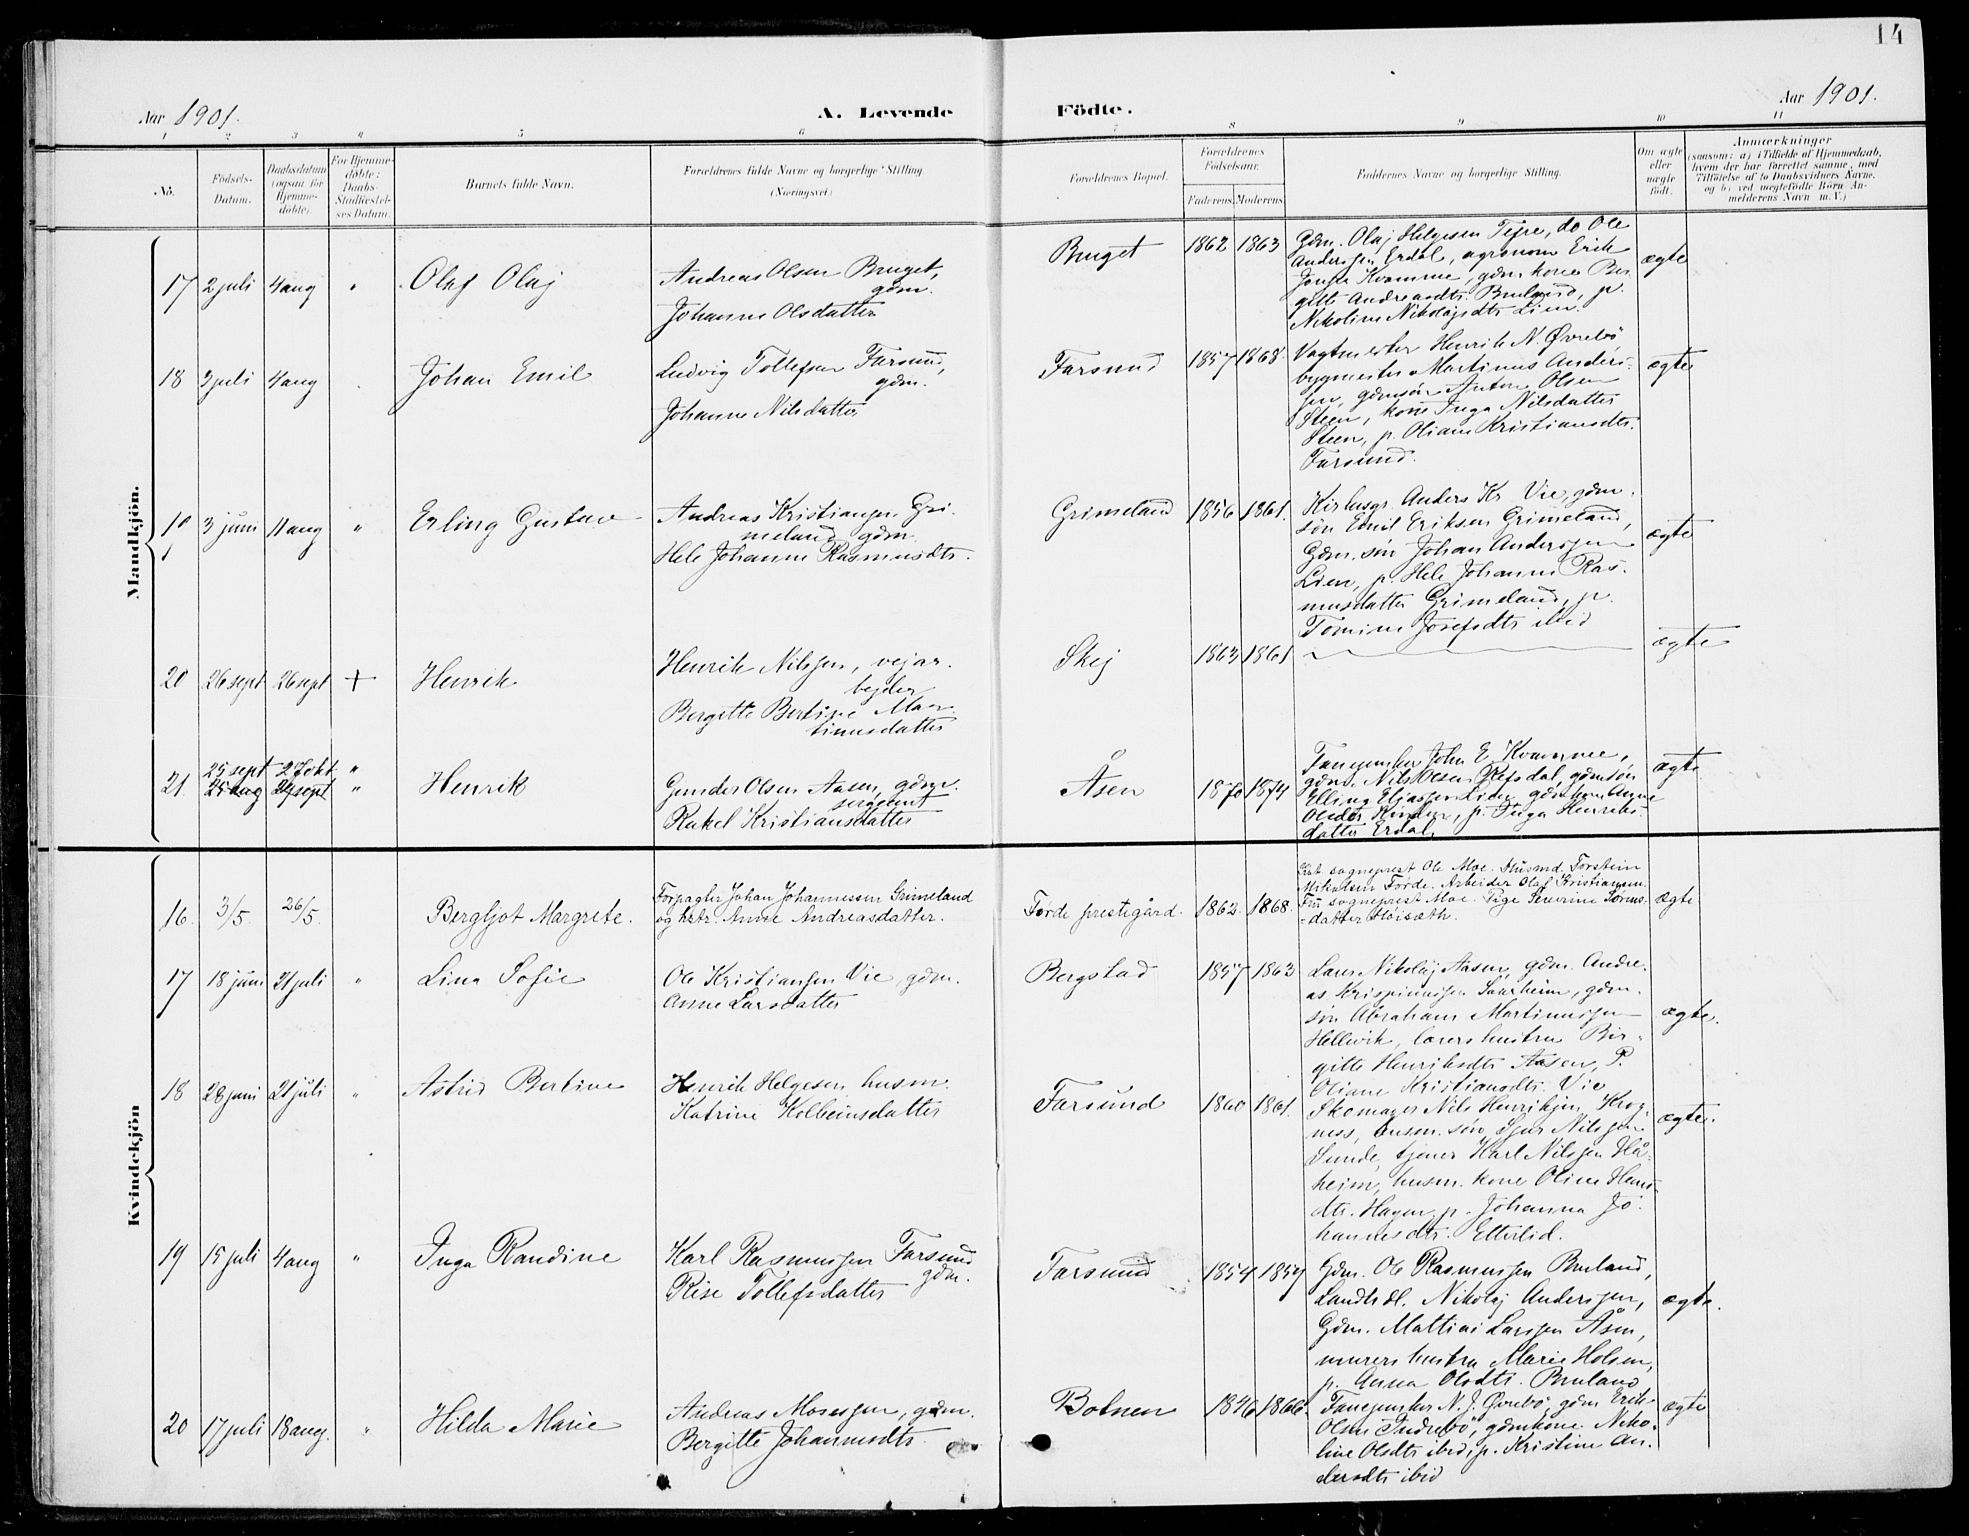 14
Aar 1901.
A. Levende
Födte.
Aar 1901.
1 2 3 4 5 6 7 8 9 10 11
No.
Födsels-
Datum.
Daabsdatum
(ogsaa for
Hjemme-
döbte).
For Hjemme-
döbte:
Daabs-
Stadfæstel-
ses Datum.
Barnets fulde Navn.
Forældrenes fulde Navne og borgerlige Stilling.
(Næringsvei.)
Forældrenes Bopæl.
Forældrenes
Födselsaar.
Faderens Moderens
Faddernes Navne og borgerlige Stilling.
Om ægte
eller
uægte
født.
Anmærkninger
(saasom: a) i Tilfælde af Hjemmedaab,
hvem der har forrettet samme, med
Tilföielse af to Daabsvidners Navne,
og b) ved uægtefödte Börn An-
melderens Navn m. V.)
Mandkjön.
17 2 juli 4 aug " Olaf Olaj
Andreas Olsen Bruget,
gdm.
Johanne Olsdatter
Bruget 1862 1863
Gdm. Olaj Helgesen Tefre, do Ole
Anderssen Erdal, agronom Erik
Jonsen Kvamme, gdm. kone Ber
gitte Andreasdtr. Bruland, p.
Nikoline Nikolajsdtr Lien.
ægte
18 3 juli 4 aug Johan Emil
Ludvig Tollefsen Farsund,
gdm.
Johanne Nilsdatter
Farsund 1857 1868
Vagtmester Henrik N. Øvrebö,
bygmester Martinus Anders-
sen, gdmsön Anton Olsen
Steen, kone Inga Nilsdatter
Steen, p. Oliane Kristiansdtr.
Farsund.
ægte
19 3 juni 11 aug " Erling Gustav
Andreas Kristiansen Gri-
meland gdm.
Hele Johanne Rasmusdtr.
Grimeland 1856 1861.
Kirkesgr. Anders Kr. Vie, gdm.
sön Emil Eriksen Grimeland,
Gdm. sön Johan Anderssen
Lien, p. Hele Johanne Ras-
musdatter Grimeland, p.
Tomine Josefsdtr ibid
ægte
20 26 sept 26 sept + Henrik
Henrik Nilssen, vejar-
bejder
Bergitte Bertine Mar-
tinusdatter
Skej 1863 1861
ægte
25 sept 27 okt "
21. 25 aug 29 sept " Henrik
Gunder Olsen Aasen, gdm.
sergeant
Rakel Kristiansdatter
Åsen 1870 1874
Fanejunker John E. Kvamme,
gdm. Nils Olsen Refsdal, gdmsön
Elling Eliassen Lien, gdm. kone Anne
Olsdtr. p. Inga Henriks-
datter Erdal
ægte
Kvindekjön
16. 3/5 26/5. Bergljot Margrete.
Forpagter Johan Johannessen Grimeland
og hstr. Anne Andreasdatter.
Førde prestegård. 1862. 1868.
Kst. sogneprest Ole Moe. Husmd. Torstein
Mikalsen Førde. Arbeider Olaf Kristiansen.
Fru sogneprest Moe. Pige Severine Sörens-
-datter Høisæth.
ægte
17 18 juni 21 juli " Lina Sofie
Ole Kristiansen Vie, gdm.
Anne Larsdatter
Bergstad 1857 1863
Lærer Nikolaj Aasen, gdm. Andre-
as Krispinussen Saarheim, gdm.
sön Abraham Martinussen
Hellevik, lærers hustru Bir-
gitte Henriksdtr Aasen, P.
Oliane Kristiansdtr. Vie
ægte.
18 28 juni 21 juli " Astrid Bertine
Henrik Helgesen husm.
Katrine Kolbeinsdatter
Farsund 1860 1861.
Skomager Nils Henriksen Krog-
næss, husm. sön Sjur Nilssen
Sunde, tjener Karl Nilssen Hå-
heim, husm. kone Oline Hans-
dtr. Hagen, p. Johanna Jo-
hannesdtr. Etterlid.
ægte.
19 15 juli 4 aug " Inga Randine
Karl Rasmussen Farsund
gdm.
Rise Tollefsdatter
Farsund 1854 1857
Gdm. Ole Rasmussen Bruland,
Landhdl. Nikolaj Anderssen,
Gdm. Mattias Larssen Åsen,
murers hustru Marie Holsen,
p. Anna Olsdtr. Bruland
ægte.
20 17 juli 18 aug. " Hilda Marie
Andreas Mosessen, gdm.
Bergitte Johannesdtr.
Botnen 1846 1866.
Fanejunker N. J. Øvrebö, gdm Erik
Olsen Indrebö, gdmkone Niko-
line Olsdtr ibid, p. Kristine An-
dersdtr ibid
ægte